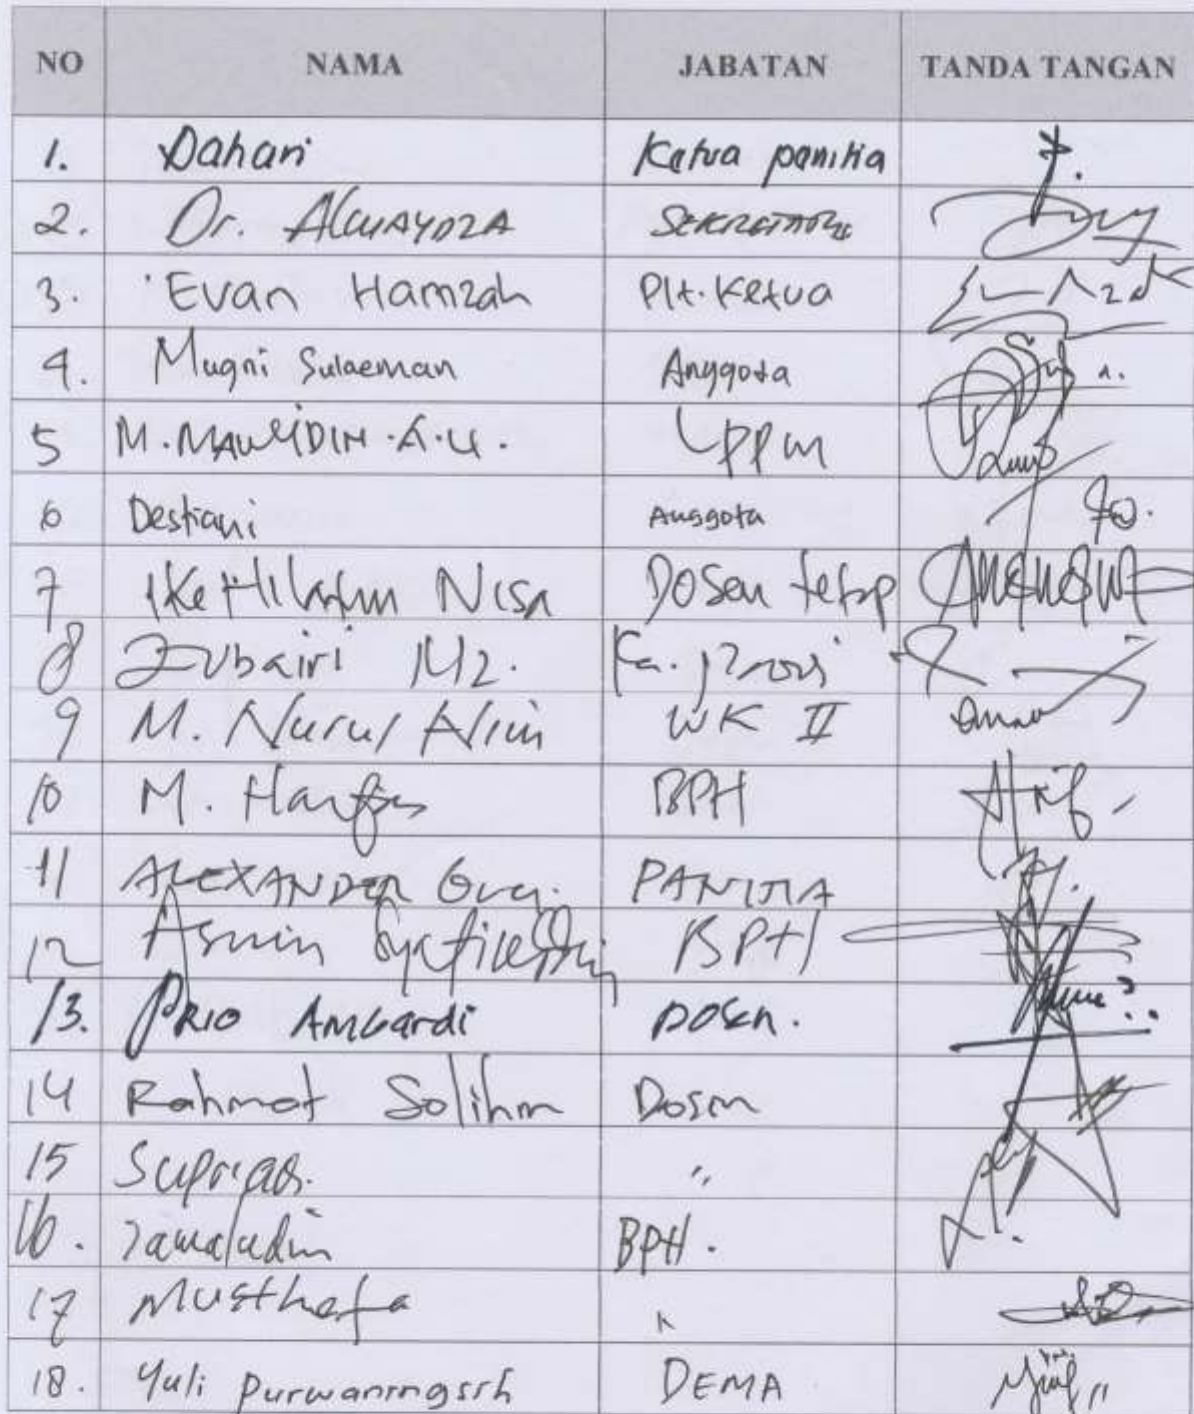 NO NAMA JABATAN TANDA TANGAN
1. Dahari Ketua panitia
2. Dr. SEKRETARIS
3. Evan Hamzah Plt. Ketua
4. Mugni Sulaeman Anggota
5 M. MAULIDIN .A.U. LPPM
6 Destiani Anggota
7 Ike Nisa Dosen tetap
8 Zubairi Mz. Ka. Prodi
9 M. Nurul Alim WK II
10 M. BPH
11 ALEXANDER PANITIA
12 Asmin BPH
13. PRIO Ambardi DOSEN.
14 Rahmat Solihin Dosen
15 Supriadi. "
16. Jamaludin BPH.
17 Musthofa "
18. Yuli Purwaningsih DEMA